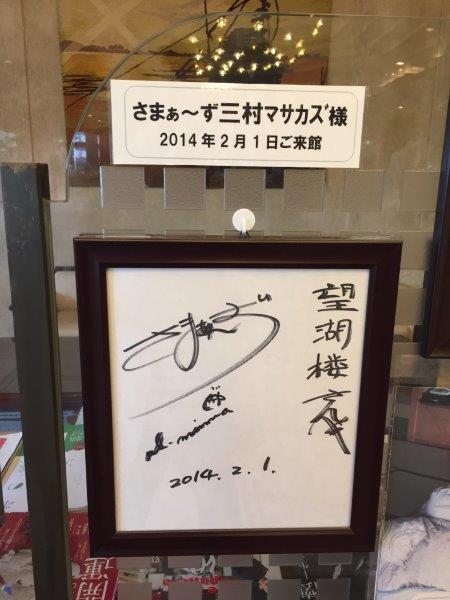 さまぁ～ず三村マサカズ様
2014年2月1日ご来館
望湖楼さん江
さまぁ～ず
2014.2.1.
開運